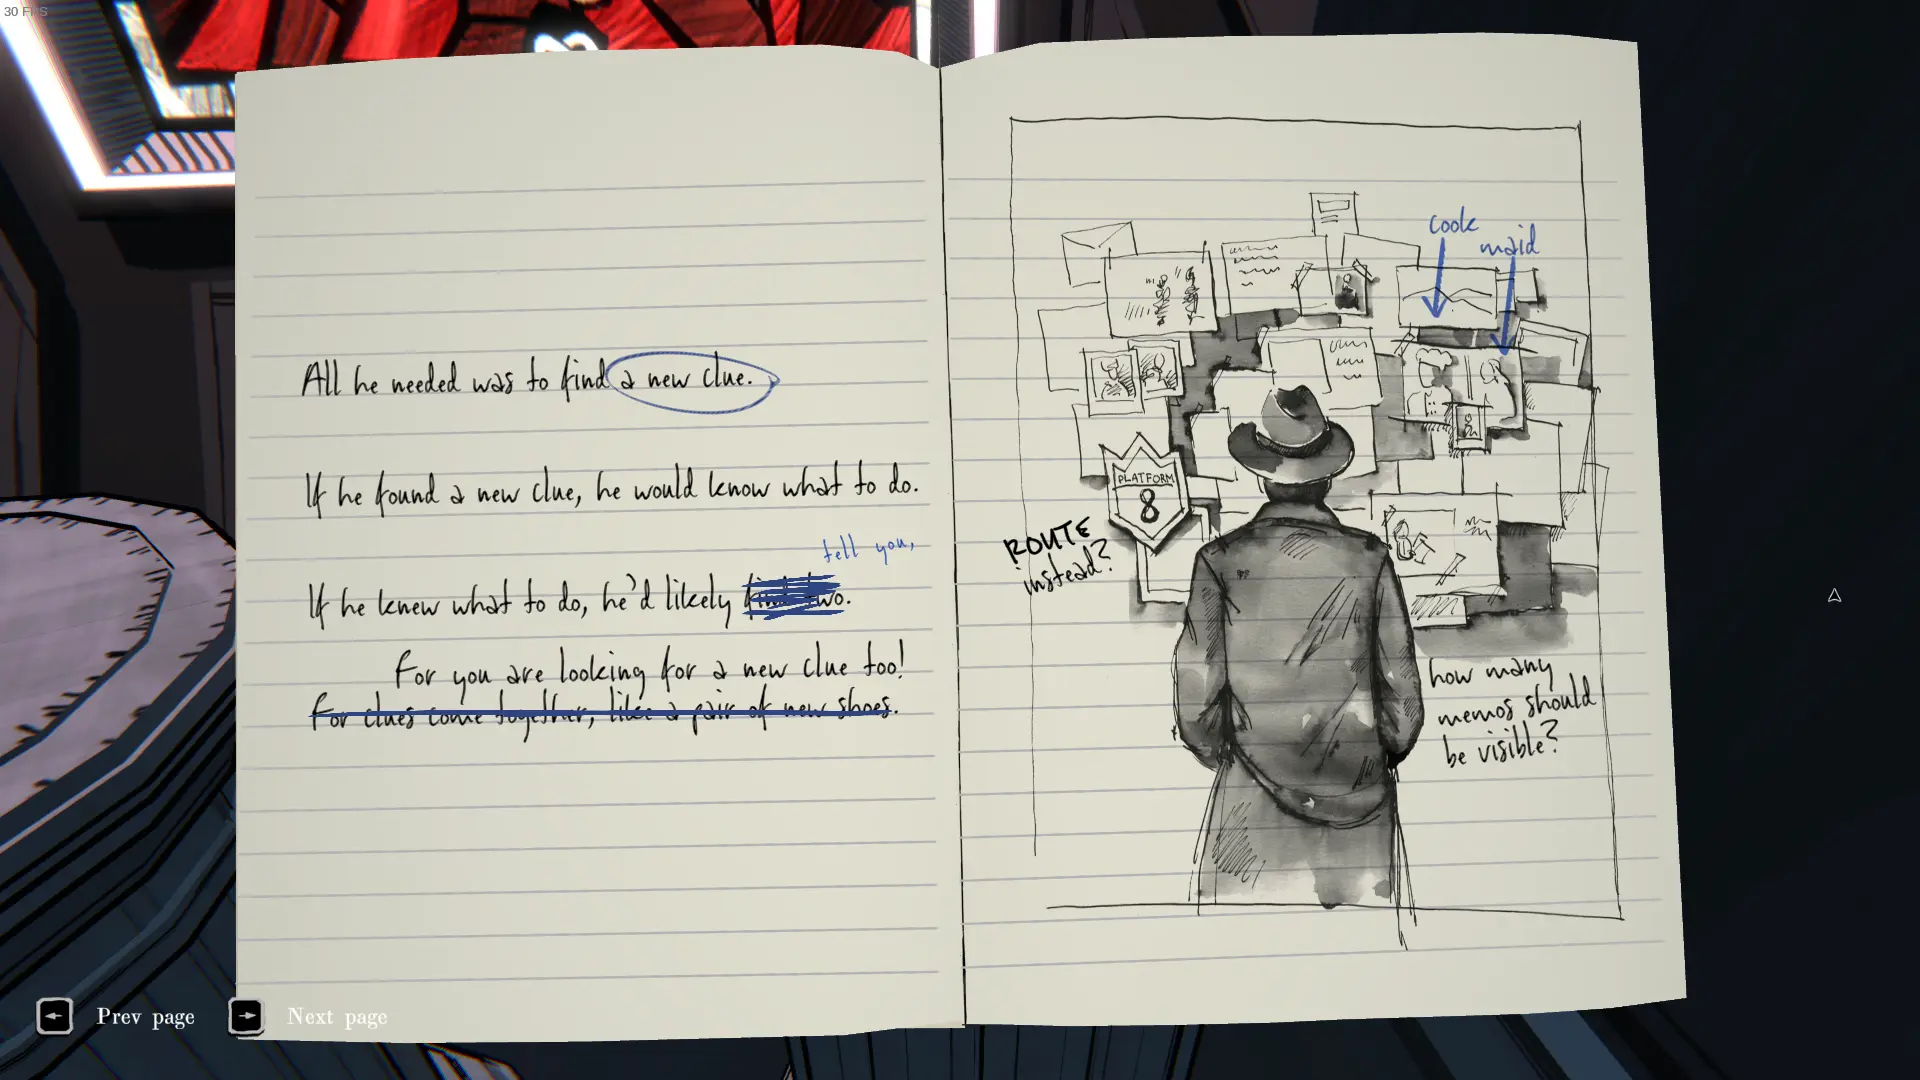 30 FPS
All he needed was to find a new clue.
If he found a new clue, he would know what to do.
tell you,
If he knew what to do, he'd likely find two.
For you are looking for a new clue too!
For clues come together, like a pair of new shoes.
cook
maid
PLATFORM
8
ROUTE
instead?
how many
memos should
be visible?
Prev page
Next page